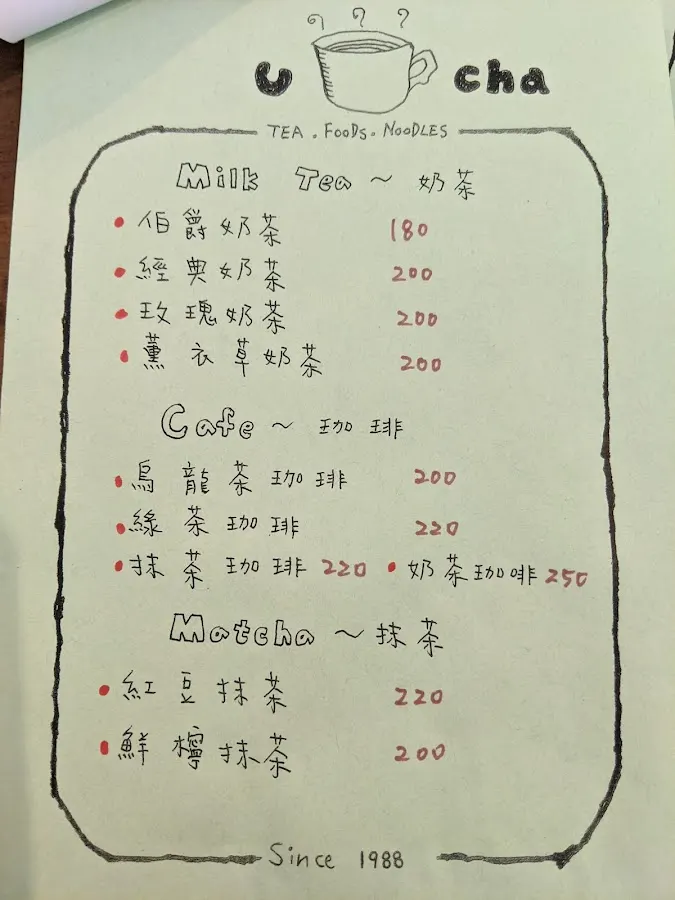 u cha
TEA . FOODS . NOODLES
Milk Tea ~ 奶茶
• 伯爵奶茶 180
• 經典奶茶 200
• 玫瑰奶茶 200
• 薰衣草奶茶 200
Cafe ~ 珈琲
• 烏龍茶珈琲 200
• 綠茶珈琲 220
• 抹茶珈琲 220 • 奶茶珈啡 250
Matcha ~ 抹茶
• 紅豆抹茶 220
• 鮮檸抹茶 200
Since 1988